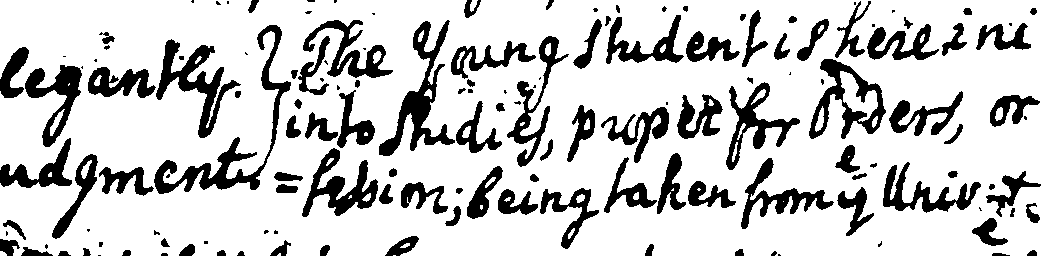 legantly. The Young Student is here ini
into Studies, proper for Orders, or
udgment. = fession; being taken from yᵉ Univ